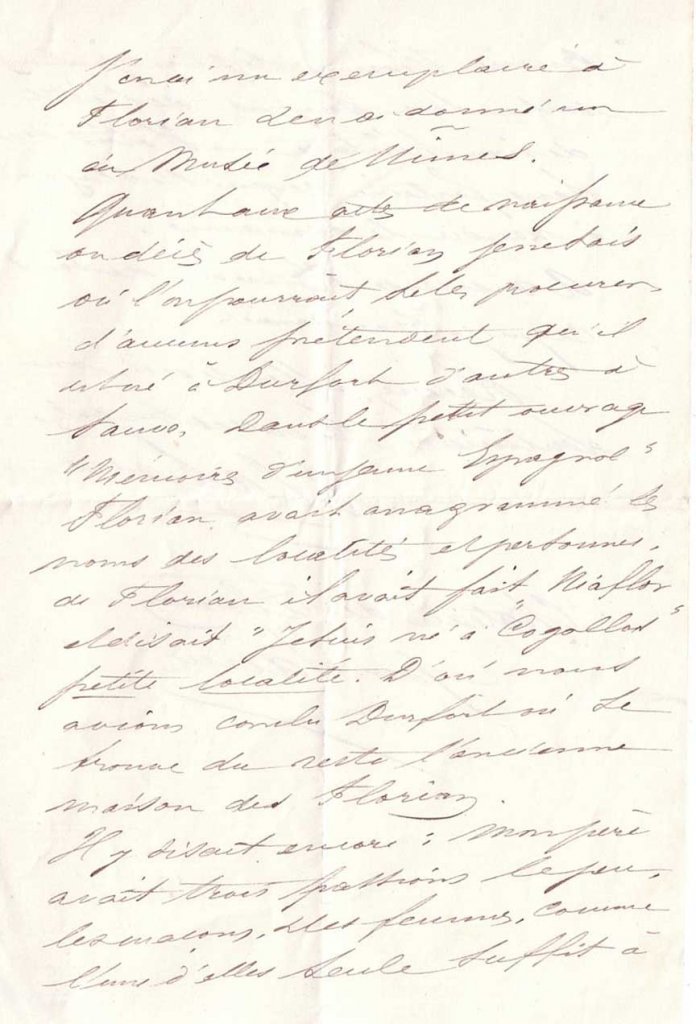 J'en ai un exemplaire à
Florian & en a donné un
au Musée de Nîmes.
Quant aux actes de naissance
ou décès de Florian je ne sais
où l'on pourrait se les procurer,
d'aucuns prétendent qu'il
est né à Durfort d'autres à
Sauve. Dans le petit ouvrage
"Mémoires d'un jeune Espagnol"
Florian avait anagrammé les
noms des localités et personnes.
de Florian il avait fait Niaflor
et disait "Je suis né à "Cogollos"
petite localité. D'où nous
avions conclu Durfort où se
trouve du reste l'ancienne
maison des Florian.
Il y disait encore : Mon père
avait trois passions le jeu,
les maçons, & les femmes, comme
l'une d'elles seule suffit à